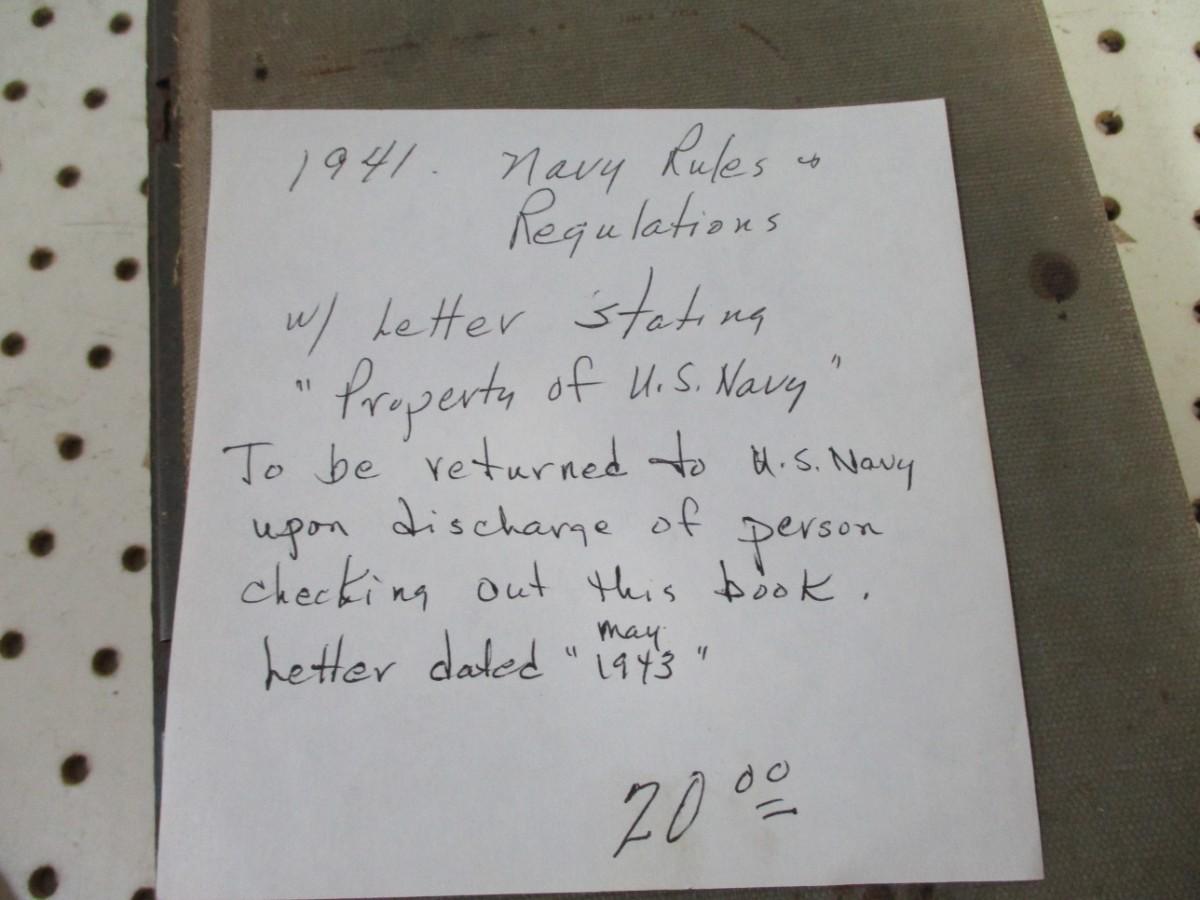 1941. Navy Rules &
Regulations
w/ Letter stating
"Property of U.S. Navy"
To be returned to U.S. Navy
upon discharge of person
checking out this book.
Letter dated "May 1943"
20 00